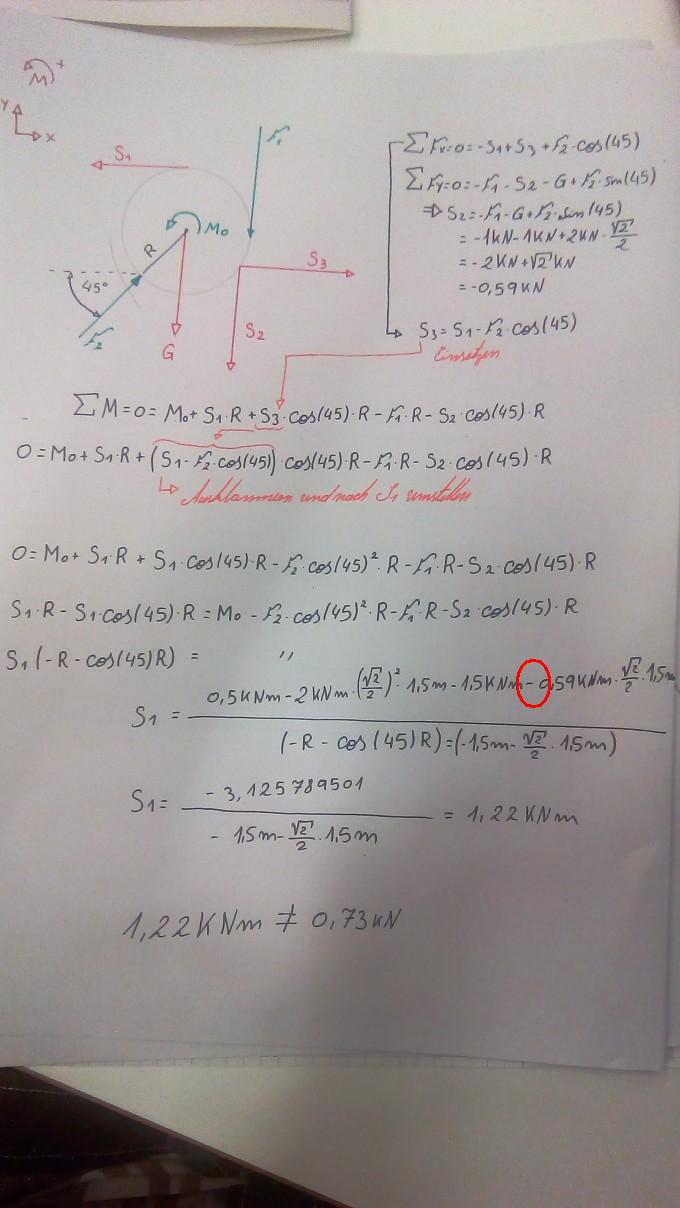 M +
Y
x
S1
F1
M0
R
S3
45°
S2
F2
G
∑Fx=0=-S1+S3+F2·cos(45)
∑Fy=0=-F1-S2-G+F2·sin(45)
⇒ S2=-F1-G+F2·sin(45)
= -1KN-1KN+2KN·√2/2
= -2KN+√2KN
= -0,59KN
S3=S1-F2·cos(45)
Einsetzen
∑M=0= M0+S1·R+S3·cos(45)·R-F1·R-S2·cos(45)·R
0=M0+S1·R+(S1-F2·cos(45))·cos(45)·R-F1·R-S2·cos(45)·R
Ausklammern und nach S1 umstellen
0=M0+S1·R+S1·cos(45)·R-F2·cos(45)²·R-F1·R-S2·cos(45)·R
S1·R-S1·cos(45)·R=M0-F2·cos(45)²·R-F1·R-S2·cos(45)·R
S1(-R-cos(45)R) = ,,
S1 = 0,5KNm-2KNm·(√2/2)²·1,5m-1,5KNm-0,59KNm·√2/2·1,5m
(-R-cos(45)R)=(-1,5m-√2/2·1,5m)
S1= -3,125789501 / -1,5m-√2/2·1,5m = 1,22KNm
1,22KNm ≠ 0,73KN